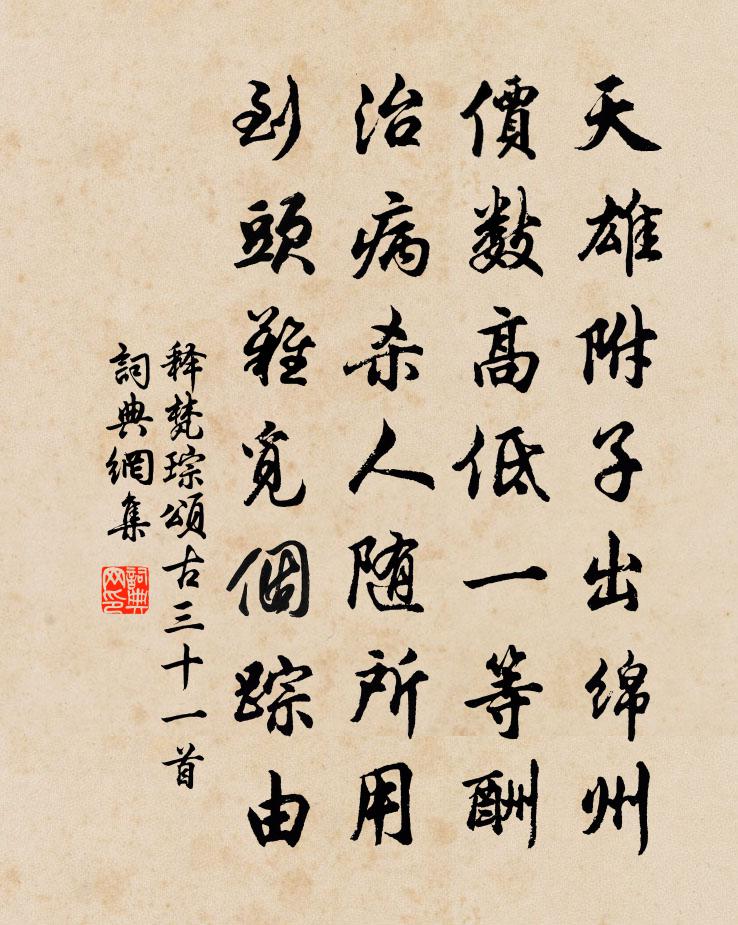 天雄附子出绵州
價數高低一等酬
治病杀人随所用
到頭難覓個踪由
释梵琮頌古三十一首
詞典網集
詞典网印